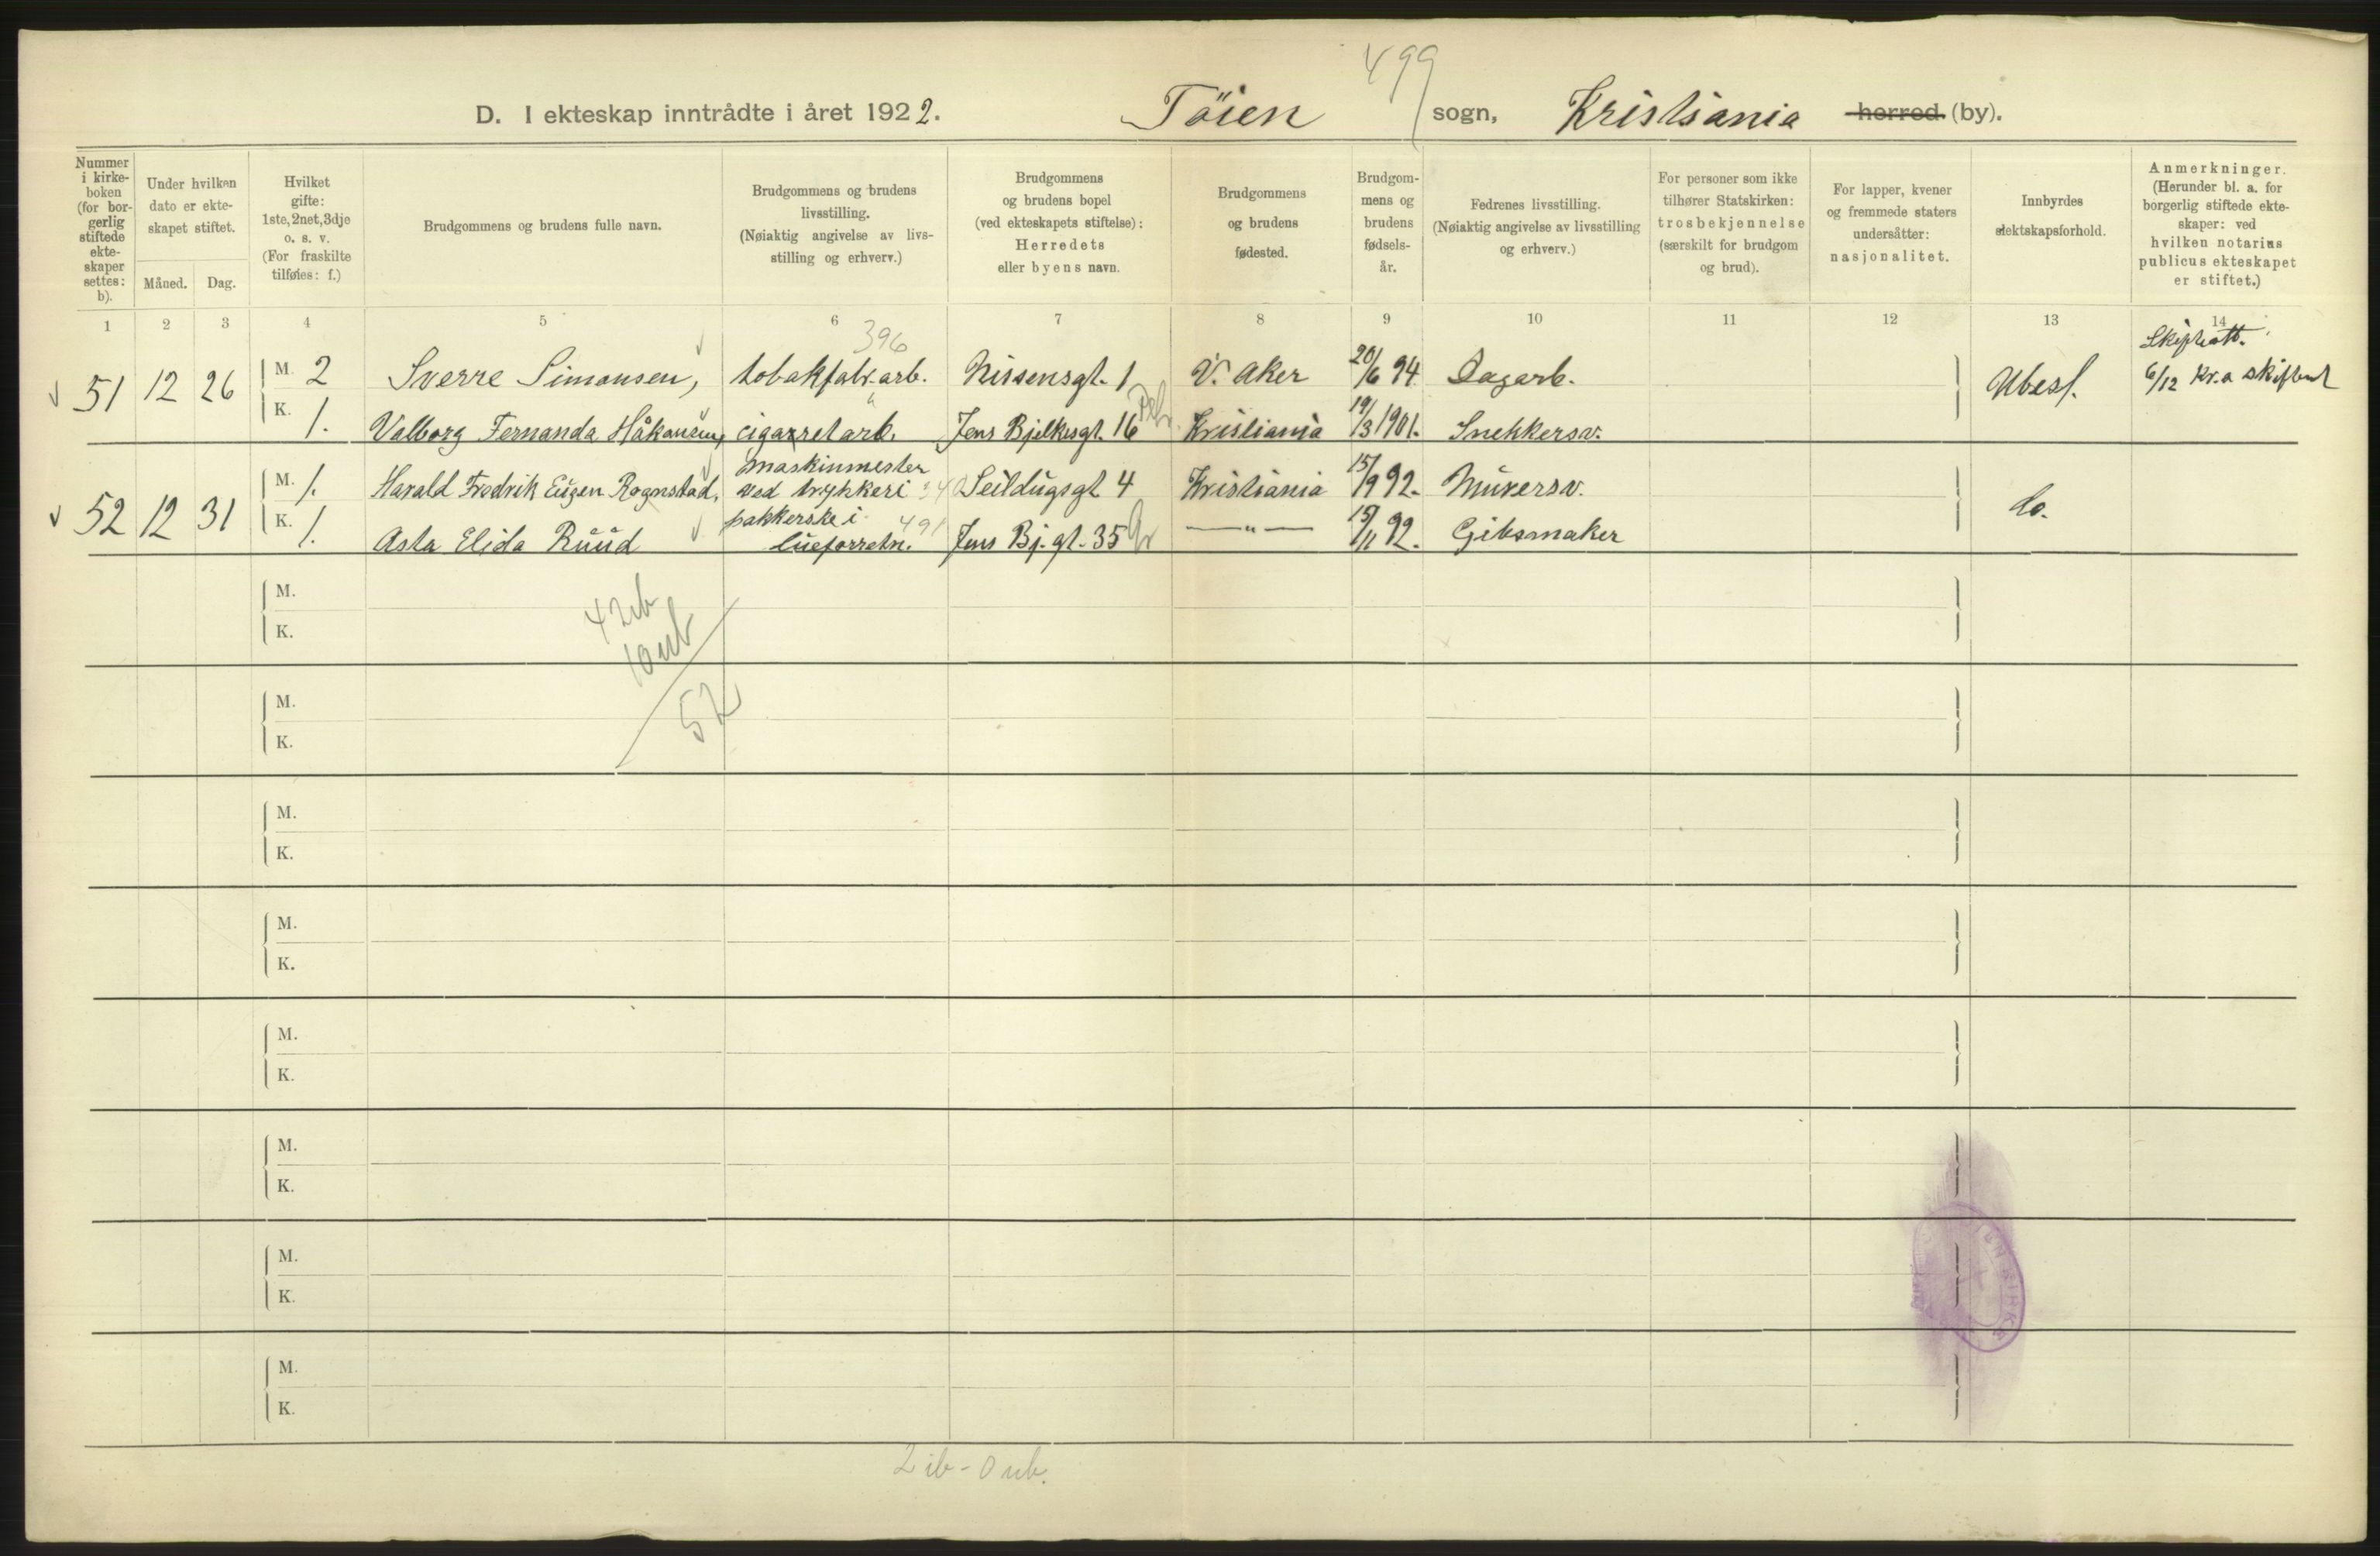 499
D. I ekteskap inntrådte i året 1922. Töien sogn, Kristiania herred (by).
Nummer i kirke-boken (for bor-gerlig stiftede ekte-skaper settes: b).
Under hvilken dato er ekte-skapet stiftet.
Måned. Dag.
Hvilket gifte: 1ste, 2net, 3dje o. s. v. (For fraskilte tilføies: f.)
Brudgommens og brudens fulle navn.
Brudgommens og brudens livsstilling. (Nøiaktig angivelse av livs-stilling og erhverv.)
Brudgommens og brudens bopel (ved ekteskapets stiftelse): Herredets eller byens navn.
Brudgommens og brudens fødested.
Brudgom-mens og brudens fødsels-år.
Fedrenes livsstilling. (Nøiaktig angivelse av livsstilling og erhverv.)
For personer som ikke tilhører Statskirken: trosbekjennelse (særskilt for brudgom og brud).
For lapper, kvener og fremmede staters undersåtter: nasjonalitet.
Innbyrdes slektskapsforhold.
Anmerkninger. (Herunder bl. a. for borgerlig stiftede ekte-skaper: ved hvilken notarius publicus ekteskapet er stiftet.)
1 2 3 4 5 6 7 8 9 10 11 12 13 14
396
51 12 26 M. 2 Sverre Simonsen, tobakfabr. arb. Nissensgt. 1 V. Aker 20/6 94 Dagarb. Ubesl. Skifteatt. 6/12 Kr.a skifterett
K. 1. Valborg Fernanda Håkansen, cigarretarb. Jens Bjelkesgt. 16 Kristiania 19/3 1901. Snekkersv.
52 12 31 M. 1. Harald Fredrik Eugen Rognstad, maskinmester ved trykkeri Seildugsgt 4 Kristiania 15/9 92. Murersv. do.
K. 1. Asta Elida Ruud pakkerske i lueforretn. 491 Jens Bj. gt. 35 — " — 15/11 92. Gibsmaker
M.
K.
42 ib
10 ub
52
M.
K.
M.
K.
M.
K.
M.
K.
M.
K.
M.
K.
M.
K.
2 ib - 0 ub.